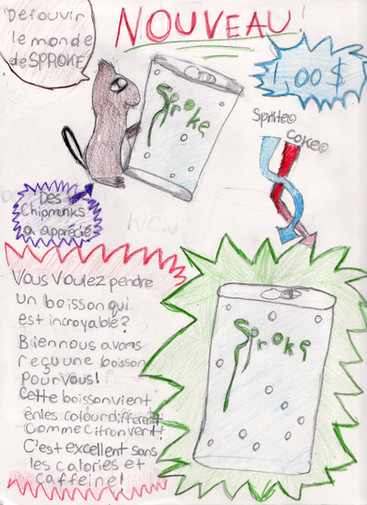 NOUVEAU!
"Défouvir
le monde
de SPROKE
1.00$
Sproke
Sprite®
COKE®
Des
Chipmunks
a apprécié
Vous voulez pendre
un boisson qui
est incroyable?
Bien nous avons
reçu une boisson
pour vous!
Cette boisson vient
en les colour different
comme citron vert!
C'est excellent sans
les calories et
caffeine!
Sproke